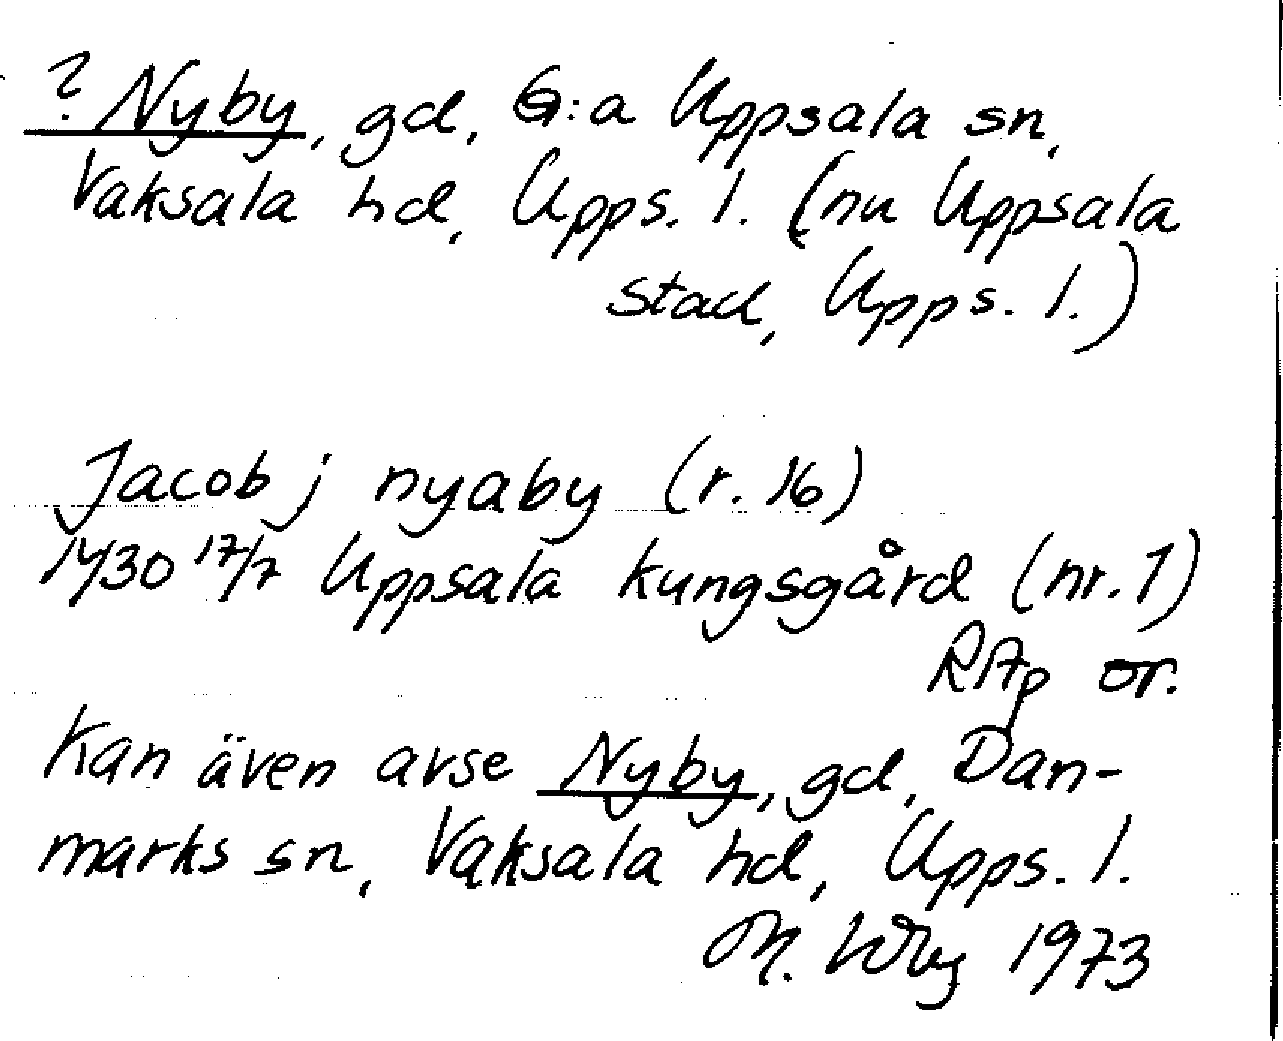 ? Nyby, gd, G:a Uppsala sn,
Vaksala hd, Upps. l. (nu Uppsala
stad, Upps. l.)
Jacob j nyaby (r. 16)
1430 17/7 Uppsala kungsgård (nr. 1)
RAp or.
Kan även avse Nyby, gd, Dan-
marks sn, Vaksala hd, Upps. l.
M. 1973